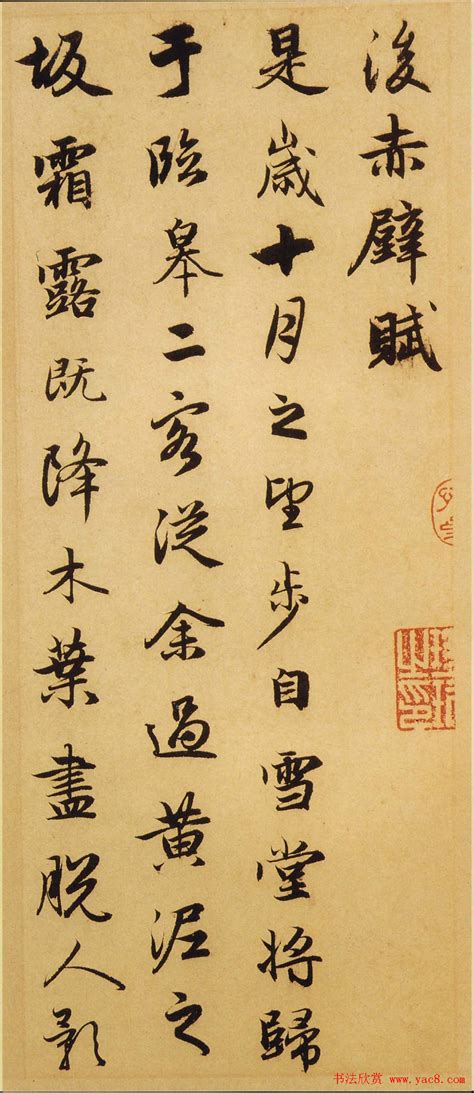 後赤壁賦
是歲十月之望步自雪堂將歸
于臨皋二客從余過黃泥之
坂霜露既降木葉盡脱人影
书法欣赏 www.yac8.com